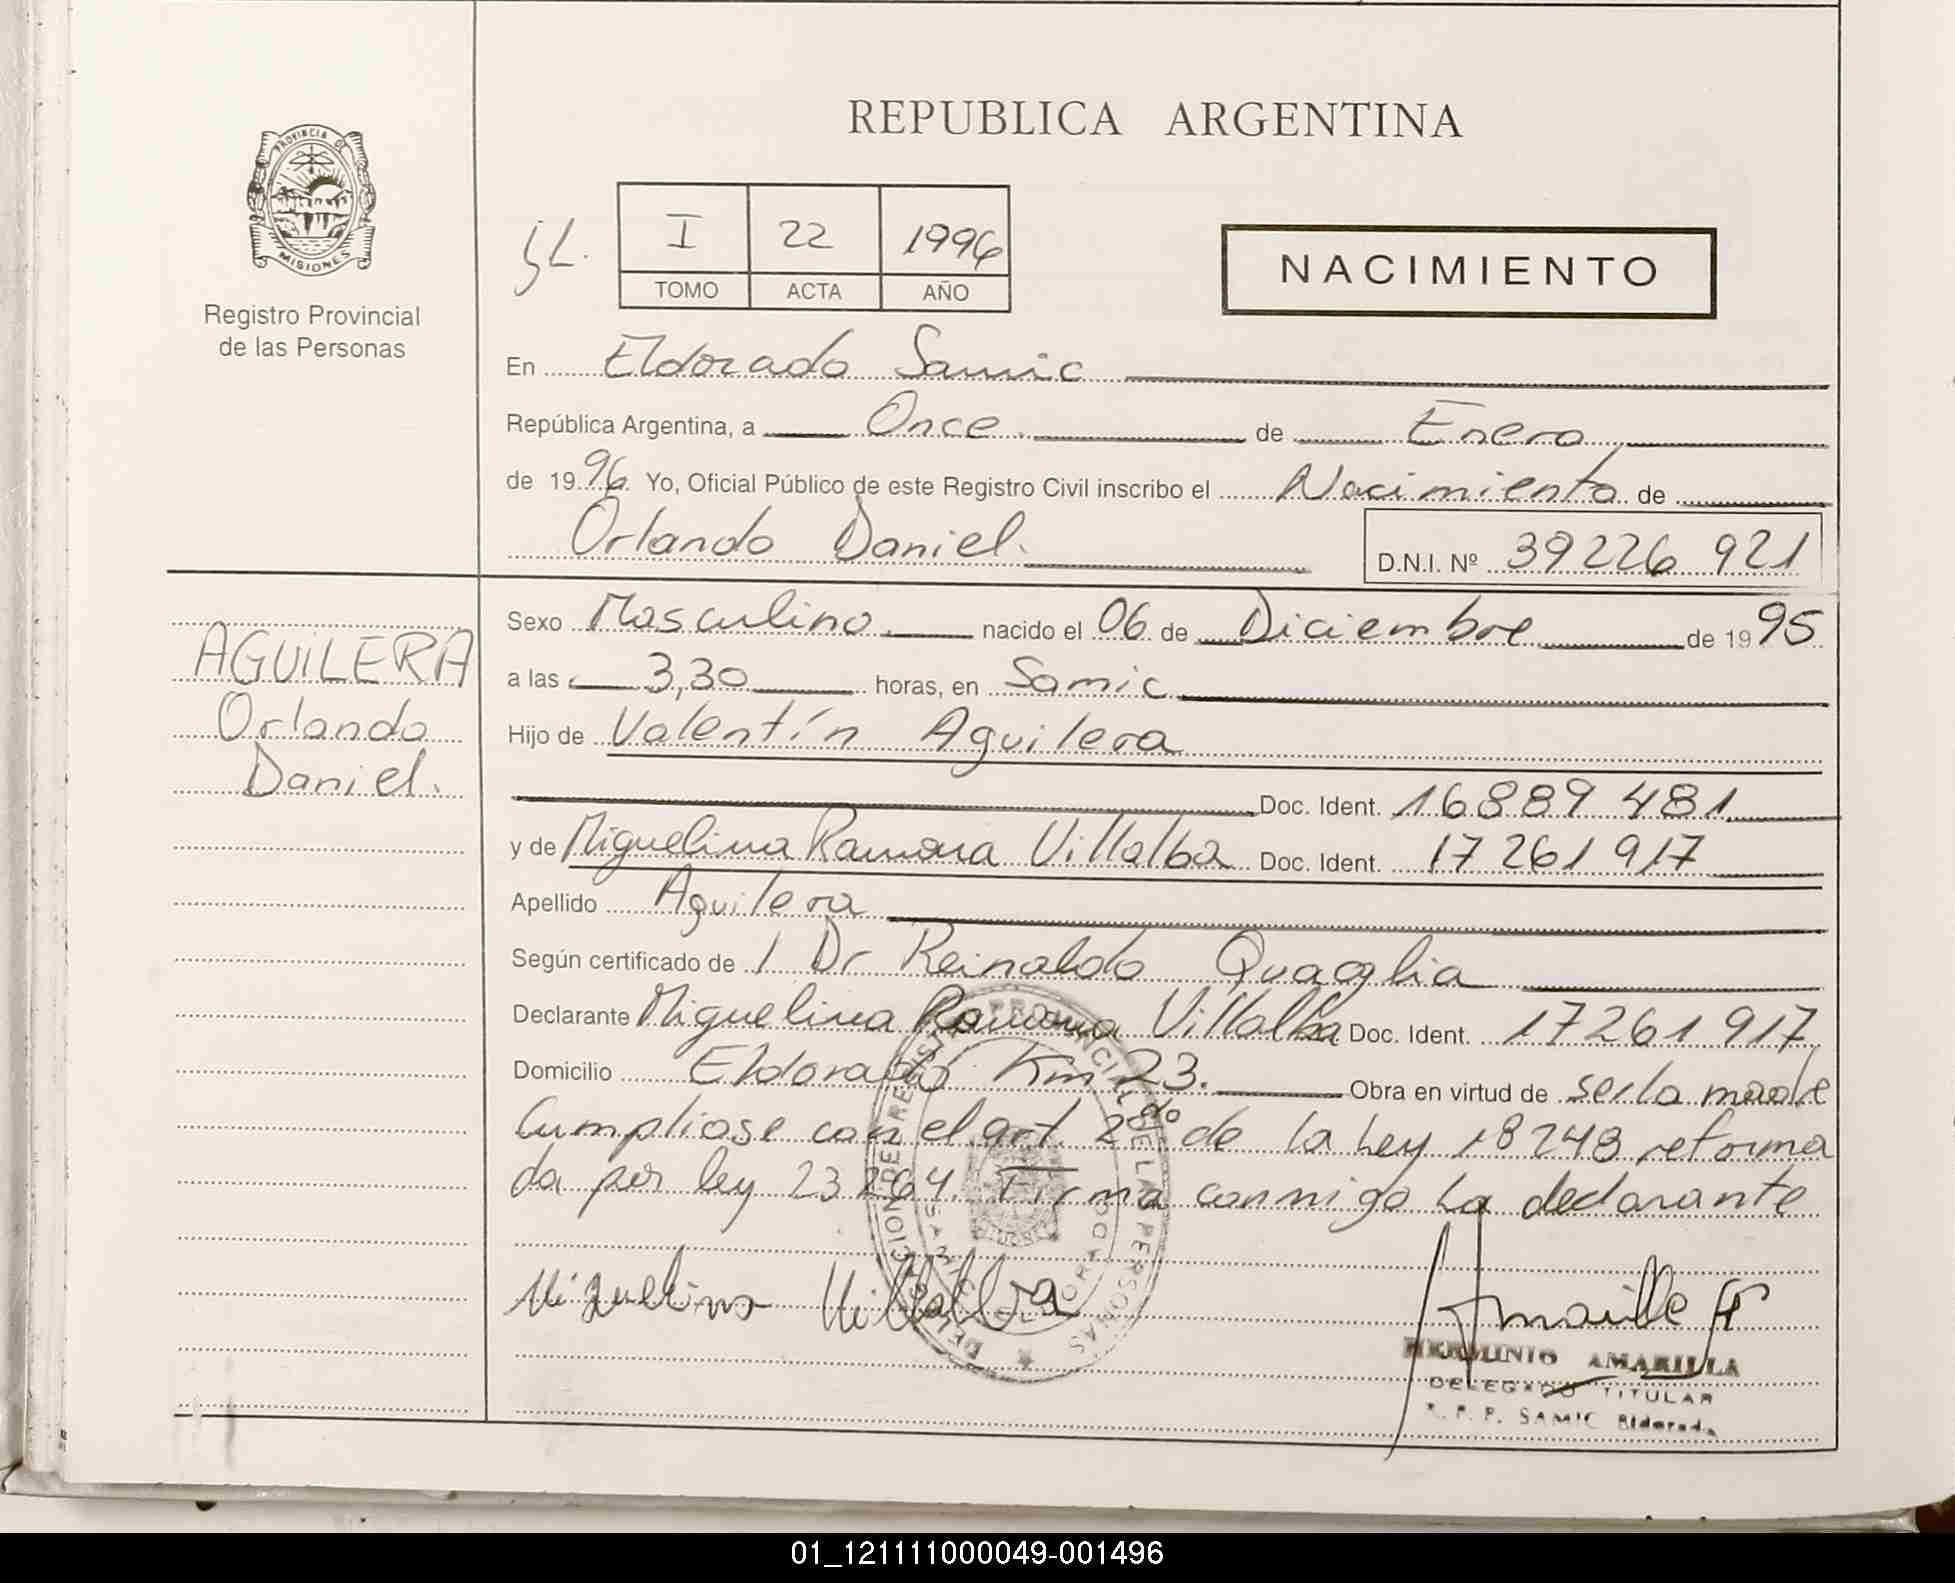 REPUBLICA ARGENTINA
PROVINCIA DE
MISIONES
Registro Provincial
de las Personas
I 22 1996
TOMO ACTA AÑO
NACIMIENTO
En Eldorado Samic
República Argentina, a Once de Enero
de 1996 Yo, Oficial Público de este Registro Civil inscribo el Nacimiento de
Orlando Daniel.
D.N.I. Nº 39226 921
AGUILERA
Orlando
Daniel.
Sexo Masculino nacido el 06 de Diciembre de 1995
a las 3,30 horas, en Samic
Hijo de Valentín Aguilera
Doc. Ident. 16889 481
y de Miguelina Ramona Villalba Doc. Ident. 17 261 917
Apellido Aguilera
Según certificado de 1 Dr Reinaldo Quaglia
Declarante Miguelina Ramona Villalba Doc. Ident. 17261 917
Domicilio Eldorado Km 23. Obra en virtud de ser la madre
Cumpliose con el art. 2do de la Ley 18248 reforma
da por ley 23264. Firma conmigo la declarante
Miguelina Villalba
HERMINIO AMARILLA
DELEGADO TITULAR
R. P. P. SAMIC Eldorado
01_121111000049-001496